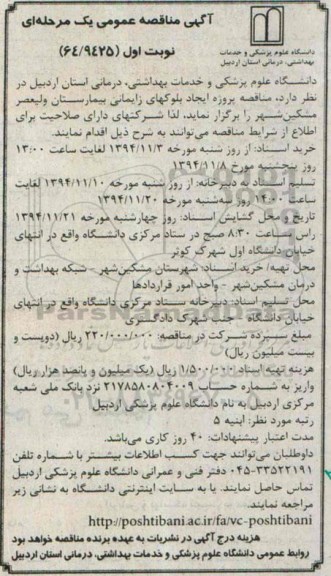 آگهی مناقصه عمومی یک مرحله‌ای
نوبت اول (۶۴/۹۴۲۵)
دانشگاه علوم پزشکی و خدمات
بهداشتی، درمانی استان اردبیل
دانشگاه علوم پزشکی و خدمات بهداشتی، درمانی استان اردبیل در
نظر دارد، مناقصه پروژه ایجاد بلوکهای زایمانی بیمارستان ولیعصر
مشکین‌شهر را برگزار نماید، لذا شرکتهای دارای صلاحیت برای
اطلاع از شرایط مناقصه می‌توانند به شرح ذیل اقدام نمایند.
خرید اسناد: از روز شنبه مورخه ۱۳۹۴/۱۱/۳ لغایت ساعت ۱۳:۰۰
روز پنجشنبه مورخ ۱۳۹۴/۱۱/۸
تسلیم اسناد به دبیرخانه: از روز شنبه مورخه ۱۳۹۴/۱۱/۱۰ لغایت
ساعت ۱۴:۰۰ روز سه‌شنبه مورخه ۱۳۹۴/۱۱/۲۰
تاریخ و محل گشایش اسناد: روز چهارشنبه مورخه ۱۳۹۴/۱۱/۲۱
راس ساعت ۸:۳۰ صبح در ستاد مرکزی دانشگاه واقع در انتهای
خیابان دانشگاه اول شهرک کوثر
محل تهیه/ خرید اسناد: شهرستان مشکین‌شهر - شبکه بهداشت و
درمان مشکین‌شهر - واحد امور قراردادها
محل تسلیم اسناد: دبیرخانه ستاد مرکزی دانشگاه واقع در انتهای
خیابان دانشگاه - جنب شهرک دادگستری
مبلغ سپرده شرکت در مناقصه: ۲۲۰/۰۰۰/۰۰۰ ریال (دویست و
بیست میلیون ریال)
هزینه تهیه اسناد: ۱/۵۰۰/۰۰۰ ریال (یک میلیون و پانصد هزار ریال)
واریز به شماره حساب ۲۱۷۸۵۸۰۸۰۴۰۰۹ نزد بانک ملی شعبه
مرکزی اردبیل به نام دانشگاه علوم پزشکی اردبیل
رتبه مورد نظر: ابنیه ۵
مدت اعتبار پیشنهادات: ۴۰ روز کاری می‌باشد.
داوطلبان می‌توانند جهت کسب اطلاعات بیشتر با شماره تلفن
۰۴۵-۳۳۵۲۲۱۹۱ دفتر فنی و عمرانی دانشگاه علوم پزشکی اردبیل
تماس حاصل نمایند. یا به سایت اینترنتی دانشگاه به نشانی زیر
مراجعه نمایند.
http://poshtibani.ac.ir/fa/vc-poshtibani
هزینه درج آگهی در نشریات به عهده برنده مناقصه خواهد بود
روابط عمومی دانشگاه علوم پزشکی و خدمات بهداشتی، درمانی استان اردبیل